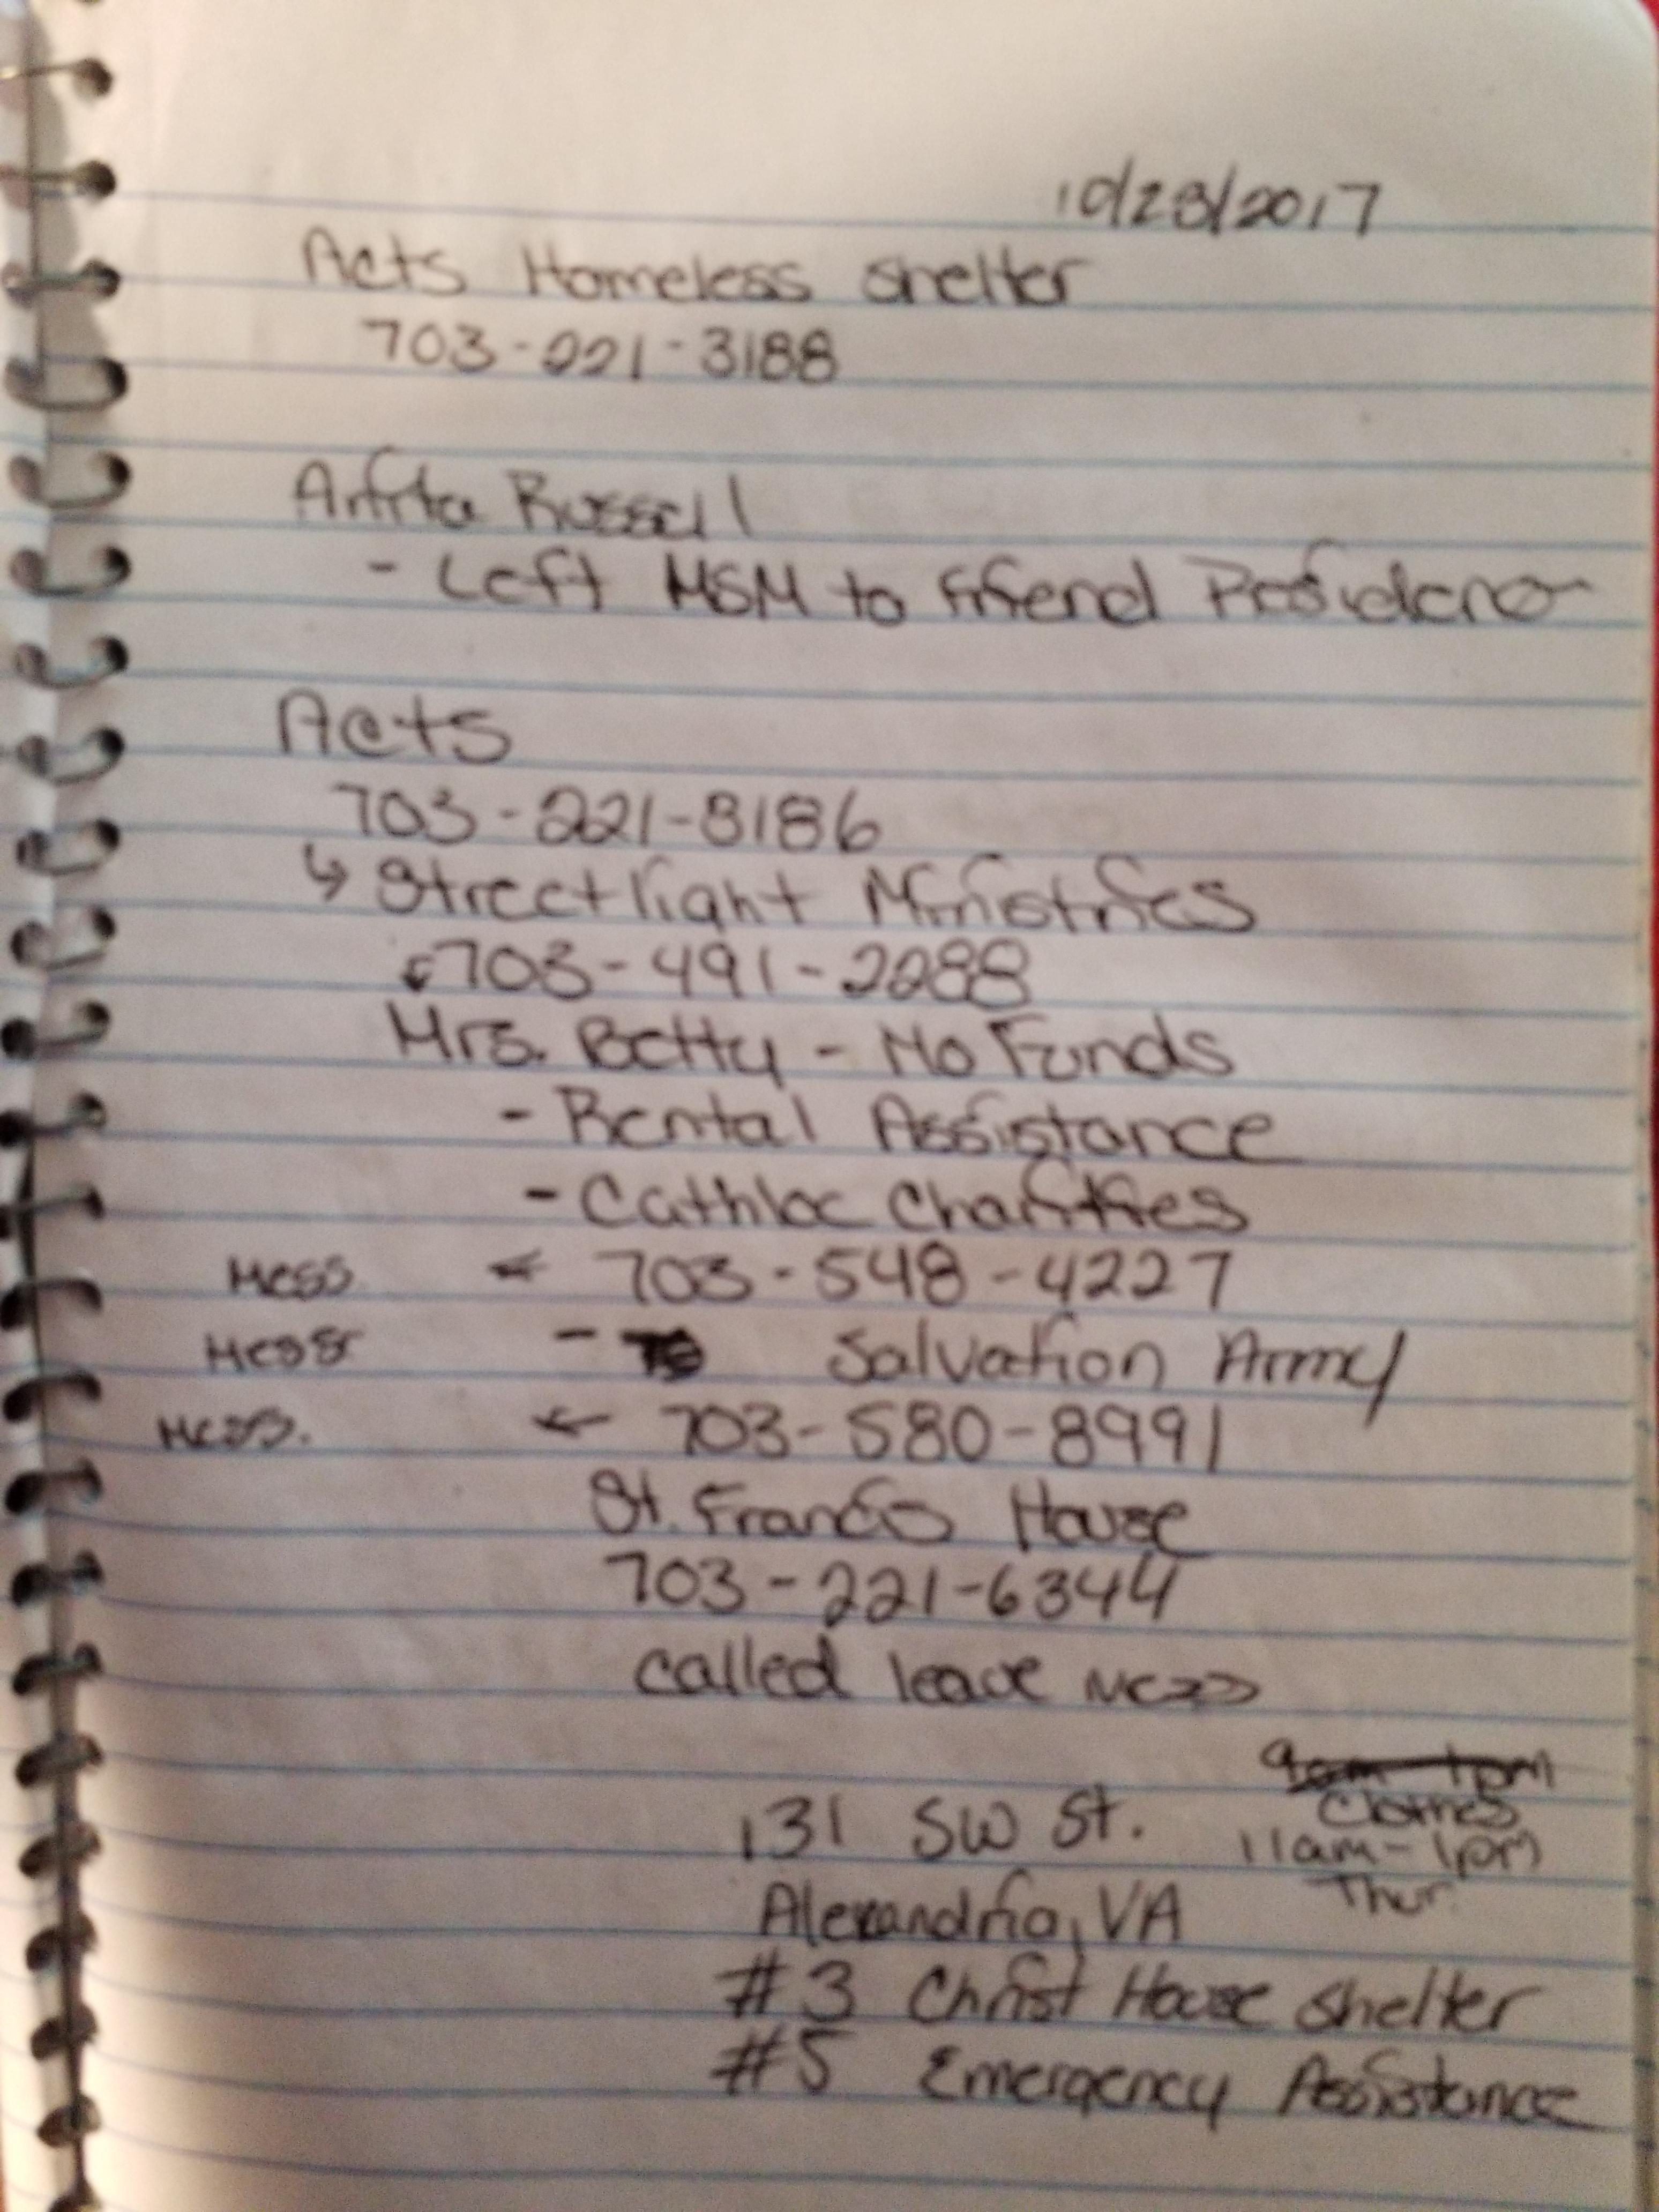 10/23/2017
Acts Homeless Shelter
703-221-3188
Anita Russell
- Left MSM to friend
Acts
703-221-3186
↳ Streetlight Ministries
703-491-2288
Mrs. Betty - No Funds
- Rental Assistance
- Cathloc Charities
Mess ← 703-548-4227
Mess - Salvation Army
Mess. ← 703-580-8991
St. Francis House
703-221-6344
called leave Mess
9am 1pm
Clothes
131 SW St. 11am-1pm
Thur.
Alexandria, VA
#3 Christ House Shelter
#5 Emergency Assistance